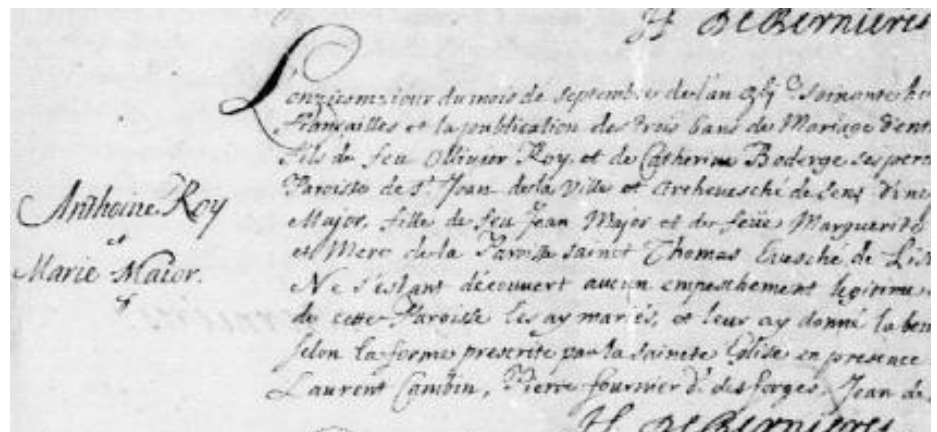 H. DeBernieres
L'onziesme jour du mois de Septembre de l'an soixante h
fiancailles et la publication des trois bans de Mariage d'ent
fils de feu Ollivier Roy, et de Catherine Boderge ses per
Paroisse de St. Jean de la Ville et Archevesché de Sens d'une
Major, fille de feu Jean Major et de feüe Marguerite
et Mere de la Paroisse sainct Thomas Evesché de Lis
Ne s'estant découvert aucun empeschement legitime
de cette Paroisse les ay mariés, et leur ay donné la ben
selon la forme prescrite par la saincte Eglise en presence
Laurent Cambin, Pierre fournier Sr. des forges. Jean de
H. DeBernieres
Anthoine Roy
et
Marie Maior.